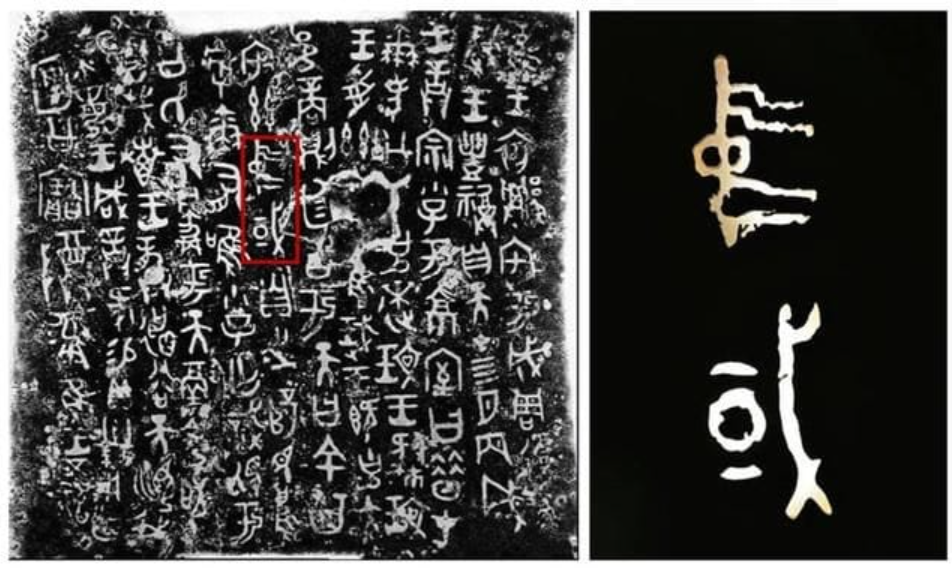 隹王初遷宅于成周復爯
珷王豊祼自天才四月丙戌
王誥宗小子于京室曰昔才
爾考公氏克逨玟王肆玟
王受茲大令隹珷王既克大
邑商則廷告于天曰余其
宅茲中或自之乂民烏
虖爾有唯小子亡識視于
公氏有爵于天徹令敬
享哉唯王恭德裕天訓我
不敏王咸誥何易貝卅朋用乍
公寶尊彝隹王五祀
中或